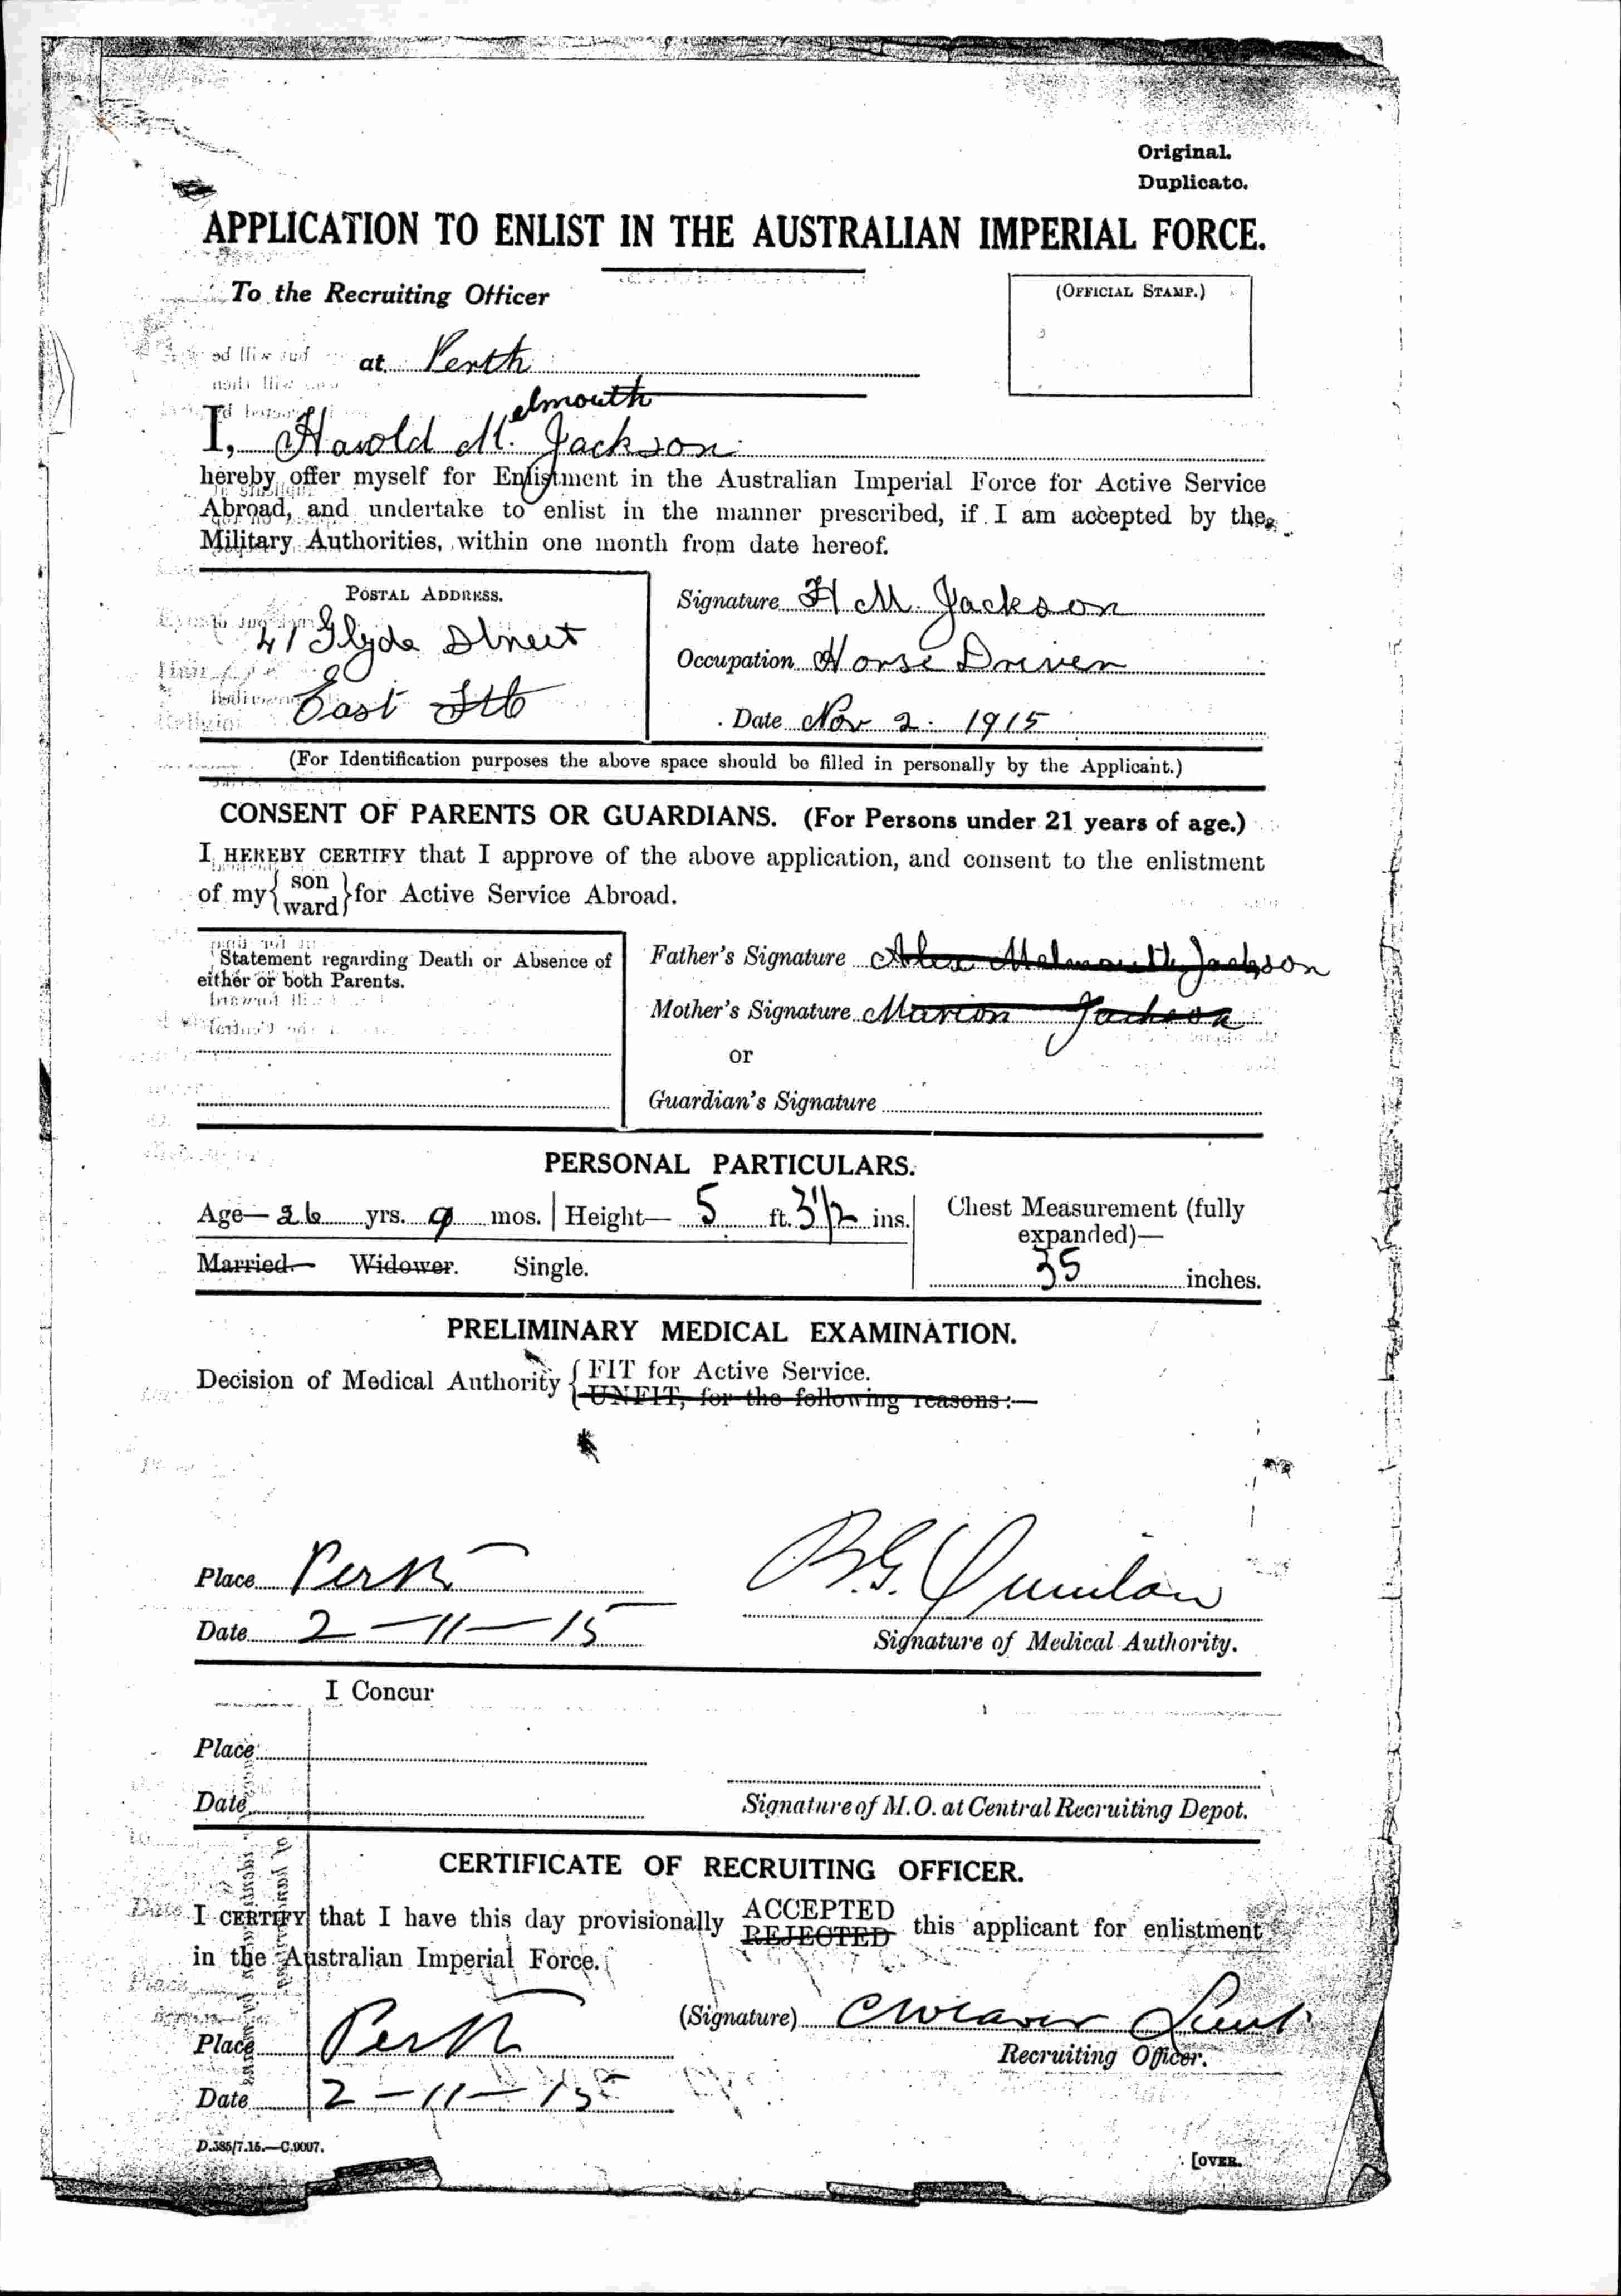 Original.
Duplicate.
APPLICATION TO ENLIST IN THE AUSTRALIAN IMPERIAL FORCE.
To the Recruiting Officer
(OFFICIAL STAMP.)
at Perth
elmouth
I, Harold M. Jackson
hereby offer myself for Enlistment in the Australian Imperial Force for Active Service
Abroad, and undertake to enlist in the manner prescribed, if I am accepted by the
Military Authorities, within one month from date hereof.
POSTAL ADDRESS.
41 Glyde Street
East Ftle
Signature H M. Jackson
Occupation Horse Driver
Date Nov 2. 1915
(For Identification purposes the above space should be filled in personally by the Applicant.)
CONSENT OF PARENTS OR GUARDIANS. (For Persons under 21 years of age.)
I HEREBY CERTIFY that I approve of the above application, and consent to the enlistment
of my { son ward } for Active Service Abroad.
Statement regarding Death or Absence of
either or both Parents.
Father's Signature Alex Melmouth Jackson
Mother's Signature Marion Jackson
or
Guardian's Signature
PERSONAL PARTICULARS.
Age— 26 yrs. 9 mos. Height— 5 ft. 3 1/2 ins.
Chest Measurement (fully
expanded)—
Married. Widower. Single.
35 inches.
PRELIMINARY MEDICAL EXAMINATION.
Decision of Medical Authority { FIT for Active Service.
UNFIT, for the following reasons:—
Place Perth
B.G. Quinlan
Date 2-11-15
Signature of Medical Authority.
I Concur
Place
Date
Signature of M.O. at Central Recruiting Depot.
CERTIFICATE OF RECRUITING OFFICER.
I CERTIFY that I have this day provisionally ACCEPTED REJECTED this applicant for enlistment
in the Australian Imperial Force.
(Signature) C Weaver Lieut
Place Perth
Recruiting Officer.
Date 2-11-15
D.385/7.15.—C.9097.
[OVER.